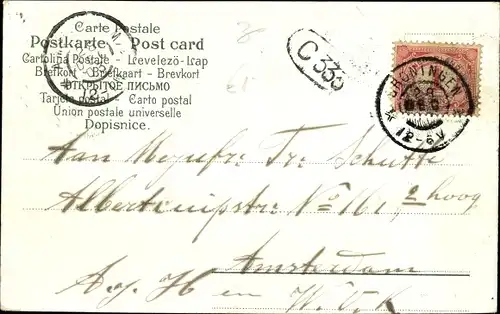 Carte Postale
Postkarte Post card
Cartolina Postale - Levelező-Lap
Brefkort - Briefkaart - Brevkort
ОТКРЫТОЕ ПИСЬМО
Tarjeta postal - Carto postal
Union postale universelle
Dopisnice.
C 335
GRONINGEN
12-6V
12-
Aan Mejufr. Tr. Schutte
Albert Cuijpstr. No 161, 2 hoog
Amsterdam
A. J. H en W. V. K